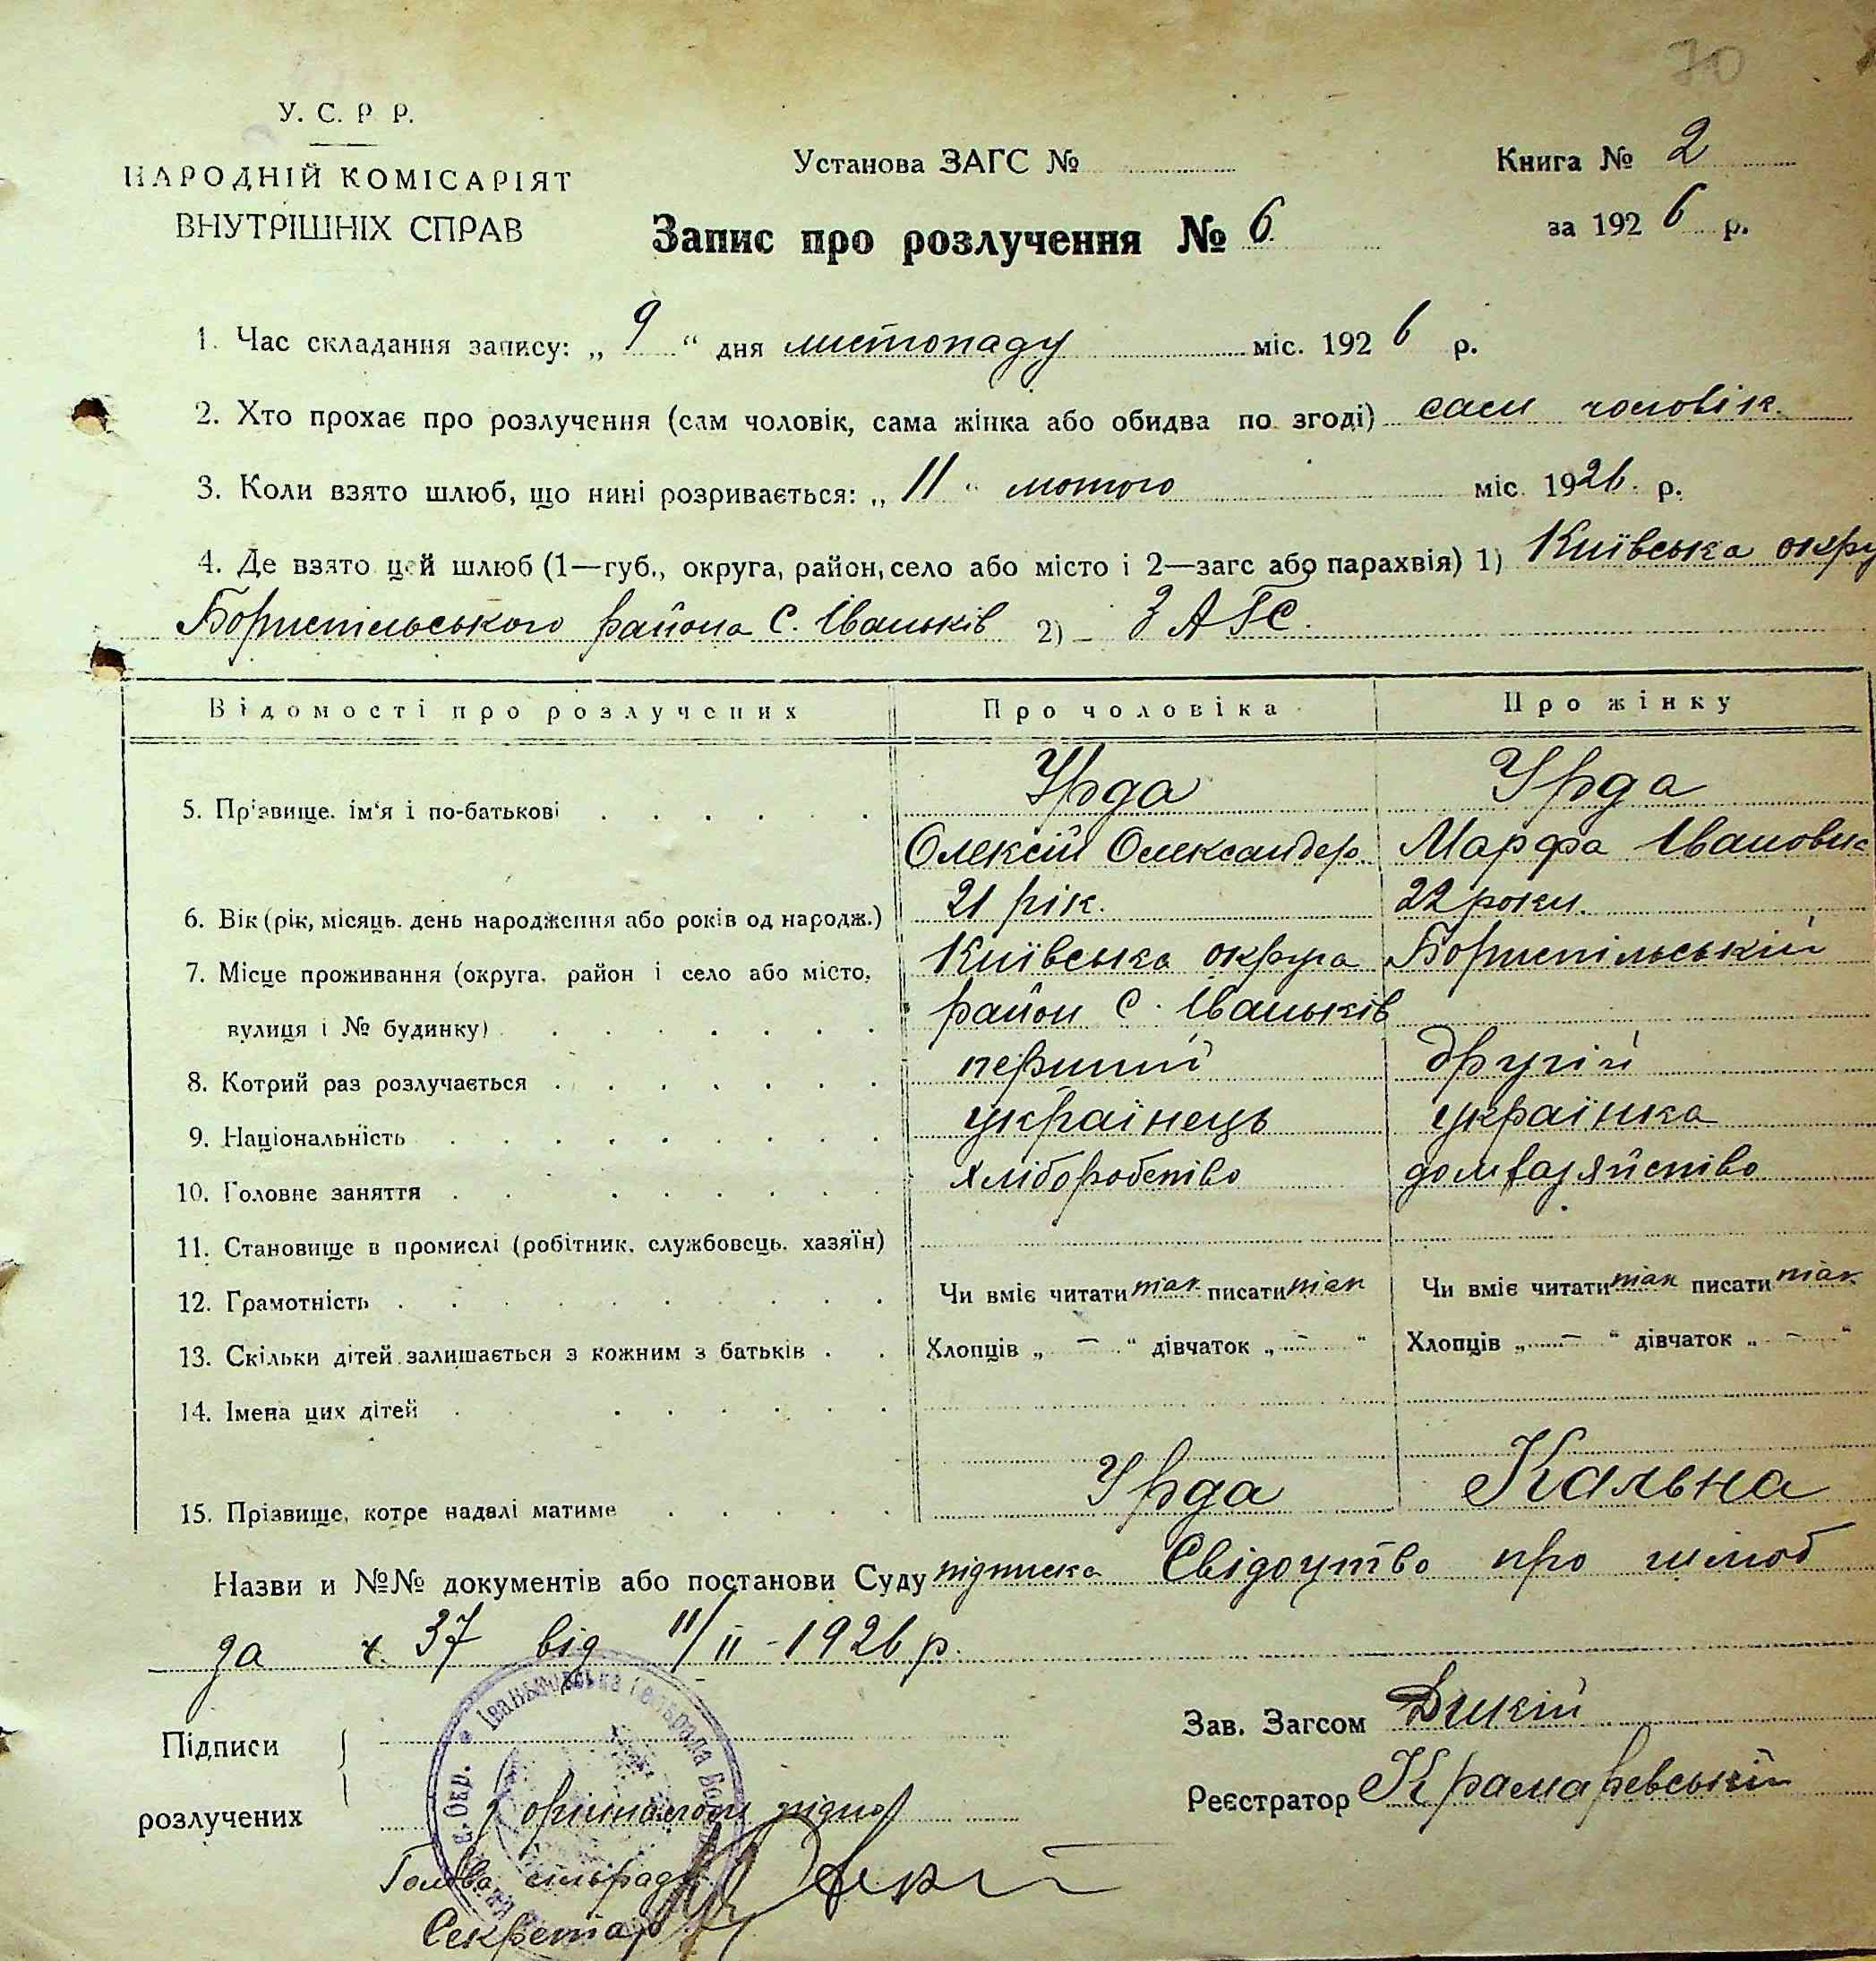 70
У. С. Р Р.
НАРОДНІЙ КОМІСАРІЯТ
ВНУТРІШНІХ СПРАВ
Установа ЗАГС №
Книга № 2
Запис про розлучення № 6.
за 1926 р.
1. Час складання запису: „ 9 “ дня листопаду міс. 1926 р.
2. Хто прохає про розлучення (сам чоловік, сама жінка або обидва по згоді) сам чоловік.
3. Коли взято шлюб, що нині розривається: „ 11 “ лютого міс. 1926. р.
4. Де взято цей шлюб (1—губ., округа, район, село або місто і 2—загс або парахвія) 1) Київська окру
Бориспільського района С. Іваньків 2) - ЗАГС.
Відомості про розлучених Про чоловіка Про жінку
Урда Урда
5. Прізвище, ім‘я і по-батькові
Олексій Олександер. Марфа Івановна
6. Вік (рік, місяць, день народження або років од народж.) 21 рік. 22 роки.
7. Місце проживання (округа, район і село або місто, Київська округа Бориспільській
вулиця і № будинку) район С. Іваньків
8. Котрий раз розлучається перший другій
9. Національність українець українка
10. Головне заняття хліборобство домхазяйство
11. Становище в промислі (робітник, службовець, хазяїн)
12. Грамотність Чи вміє читати так писати так Чи вміє читати так писати так
13. Скільки дітей залишається з кожним з батьків Хлопців „ — “ дівчаток „ — “ Хлопців „ — “ дівчаток „ — “
14. Імена цих дітей
15. Прізвище, котре надалі матиме Урда Кальна
Назви и №№ документів або постанови Суду підписка Свідоцтво про шлюб
за ч. 37 від 11/II - 1926 р.
Підписи
розлучених
Зав. Загсом Дикій
Реєстратор Крамаревський
З оригіналом
Голова сільради
Секретар